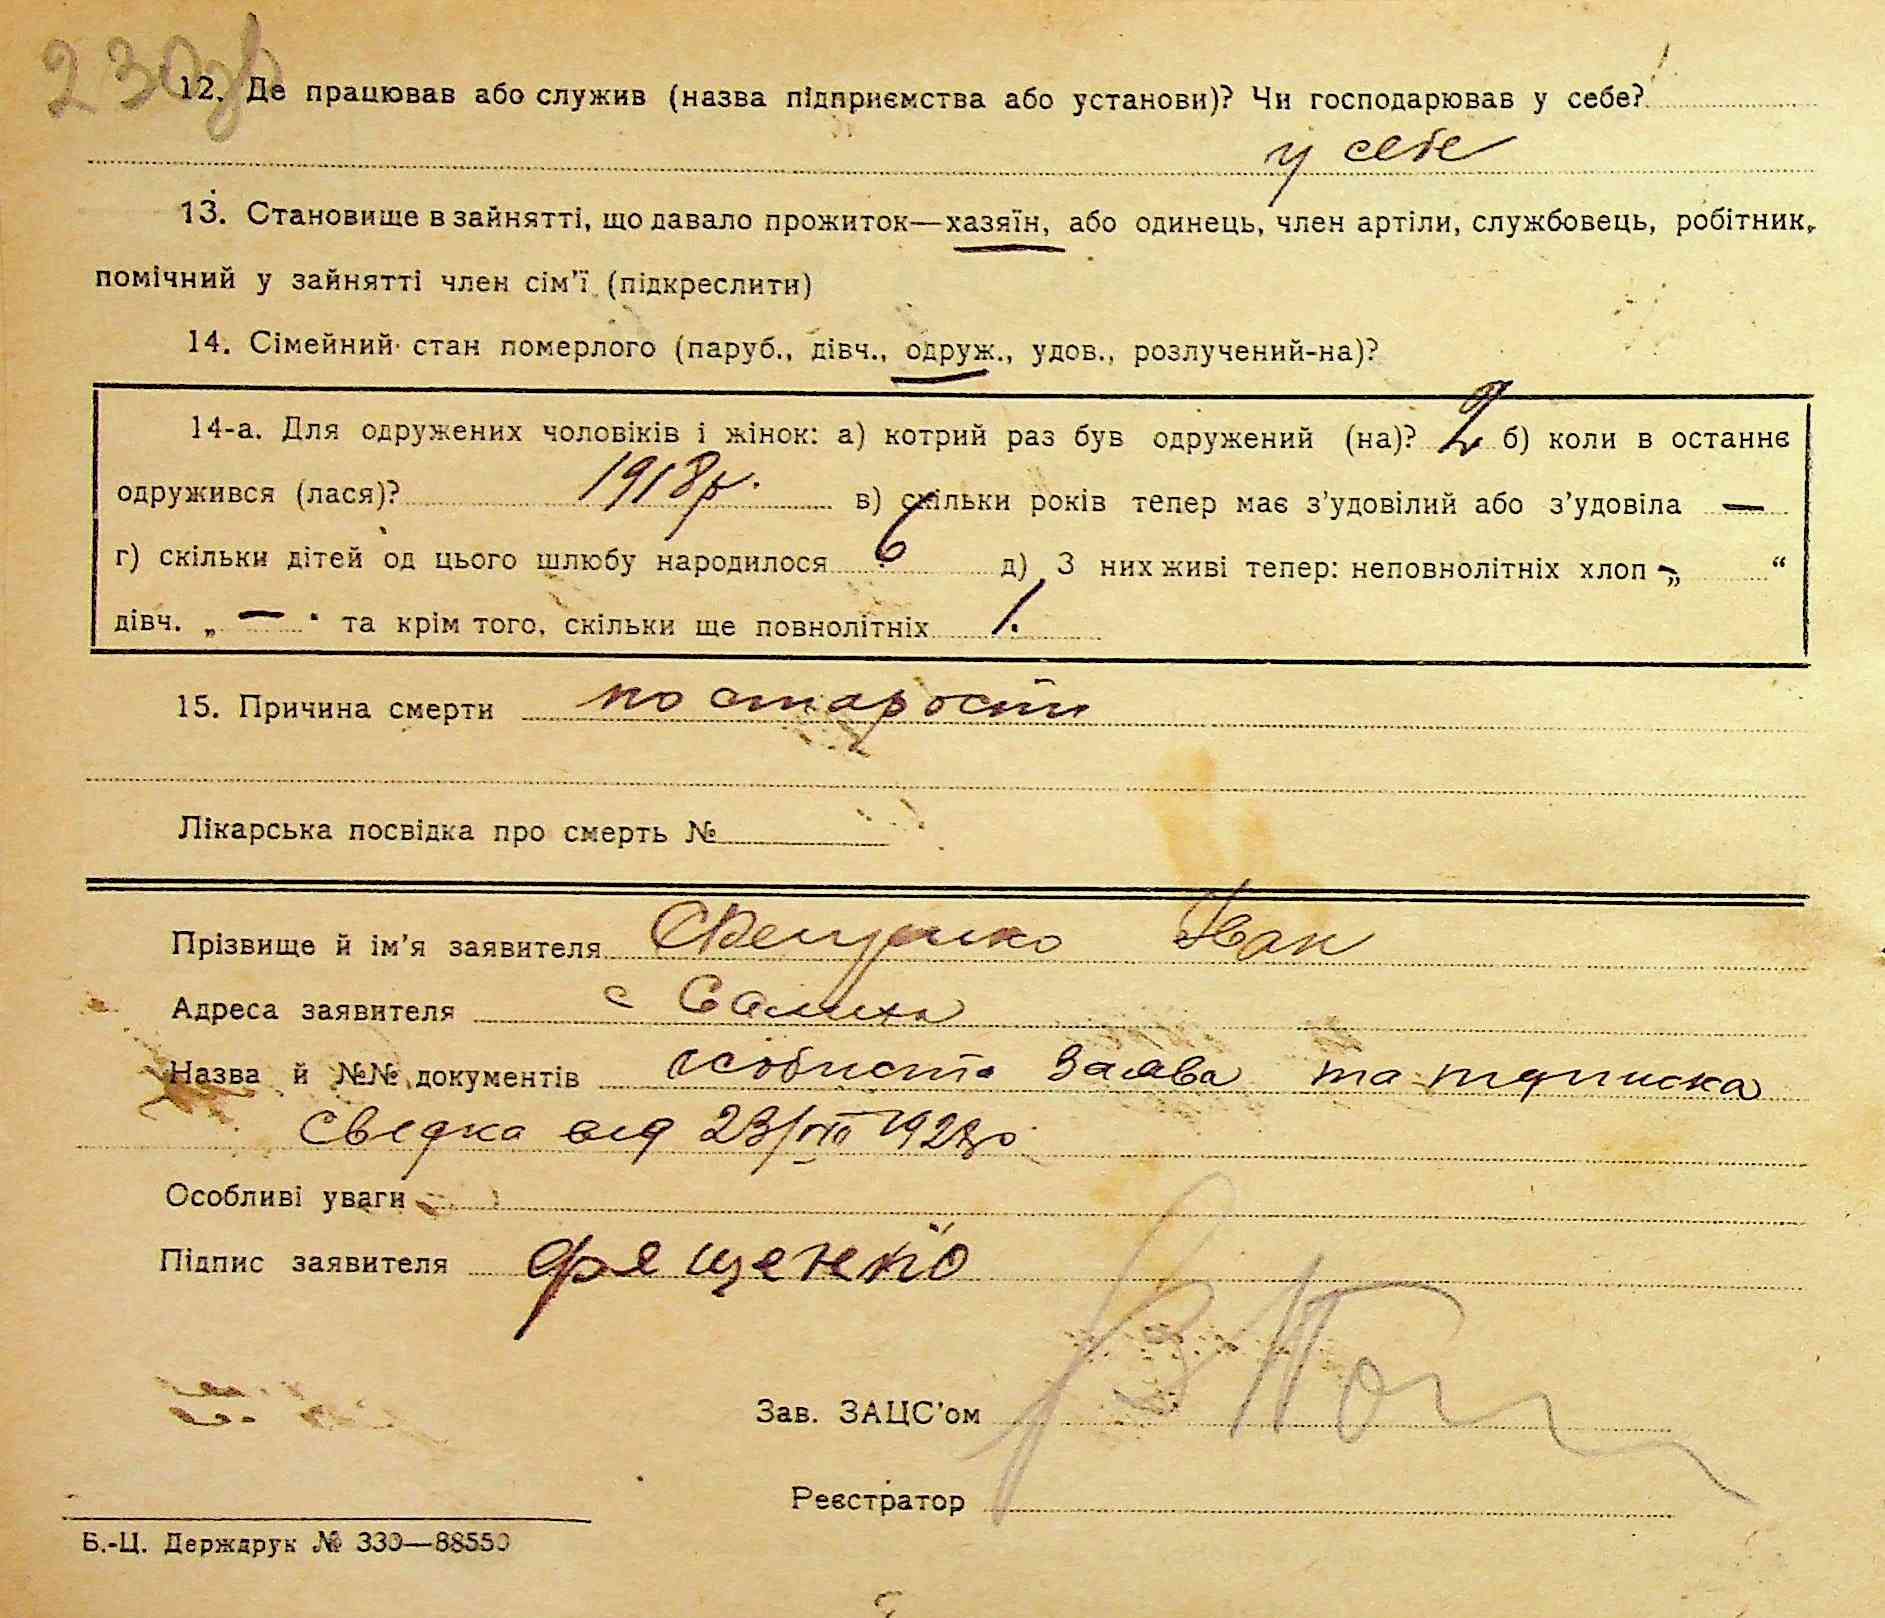 230зв
12. Де працював або служив (назва підприємства або установи)? Чи господарював у себе?
у себе
13. Становище в зайнятті, що давало прожиток—хазяїн, або одинець, член артіли, службовець, робітник,
помічний у зайнятті член сім'ї (підкреслити)
14. Сімейний стан померлого (паруб., дівч., одруж., удов., розлучений-на)?
14-а. Для одружених чоловіків і жінок: а) котрий раз був одружений (на)? 2 б) коли в останнє
одружився (лася)? 1918р. в) скільки років тепер має з'удовілий або з'удовіла —
г) скільки дітей од цього шлюбу народилося 6 д) З них живі тепер: неповнолітніх хлоп „ — “
дівч. „ — “ та крім того, скільки ще повнолітніх 1.
15. Причина смерти по старости
Лікарська посвідка про смерть №
Прізвище й ім'я заявителя Іван
Адреса заявителя с
Назва й №№ документів особиста заява та підписка
сведка від 23/VIII 192
Особливі уваги
Підпис заявителя Фещенко
Зав. ЗАЦС'ом
Реєстратор
Б.-Ц. Держдрук № 330—88550